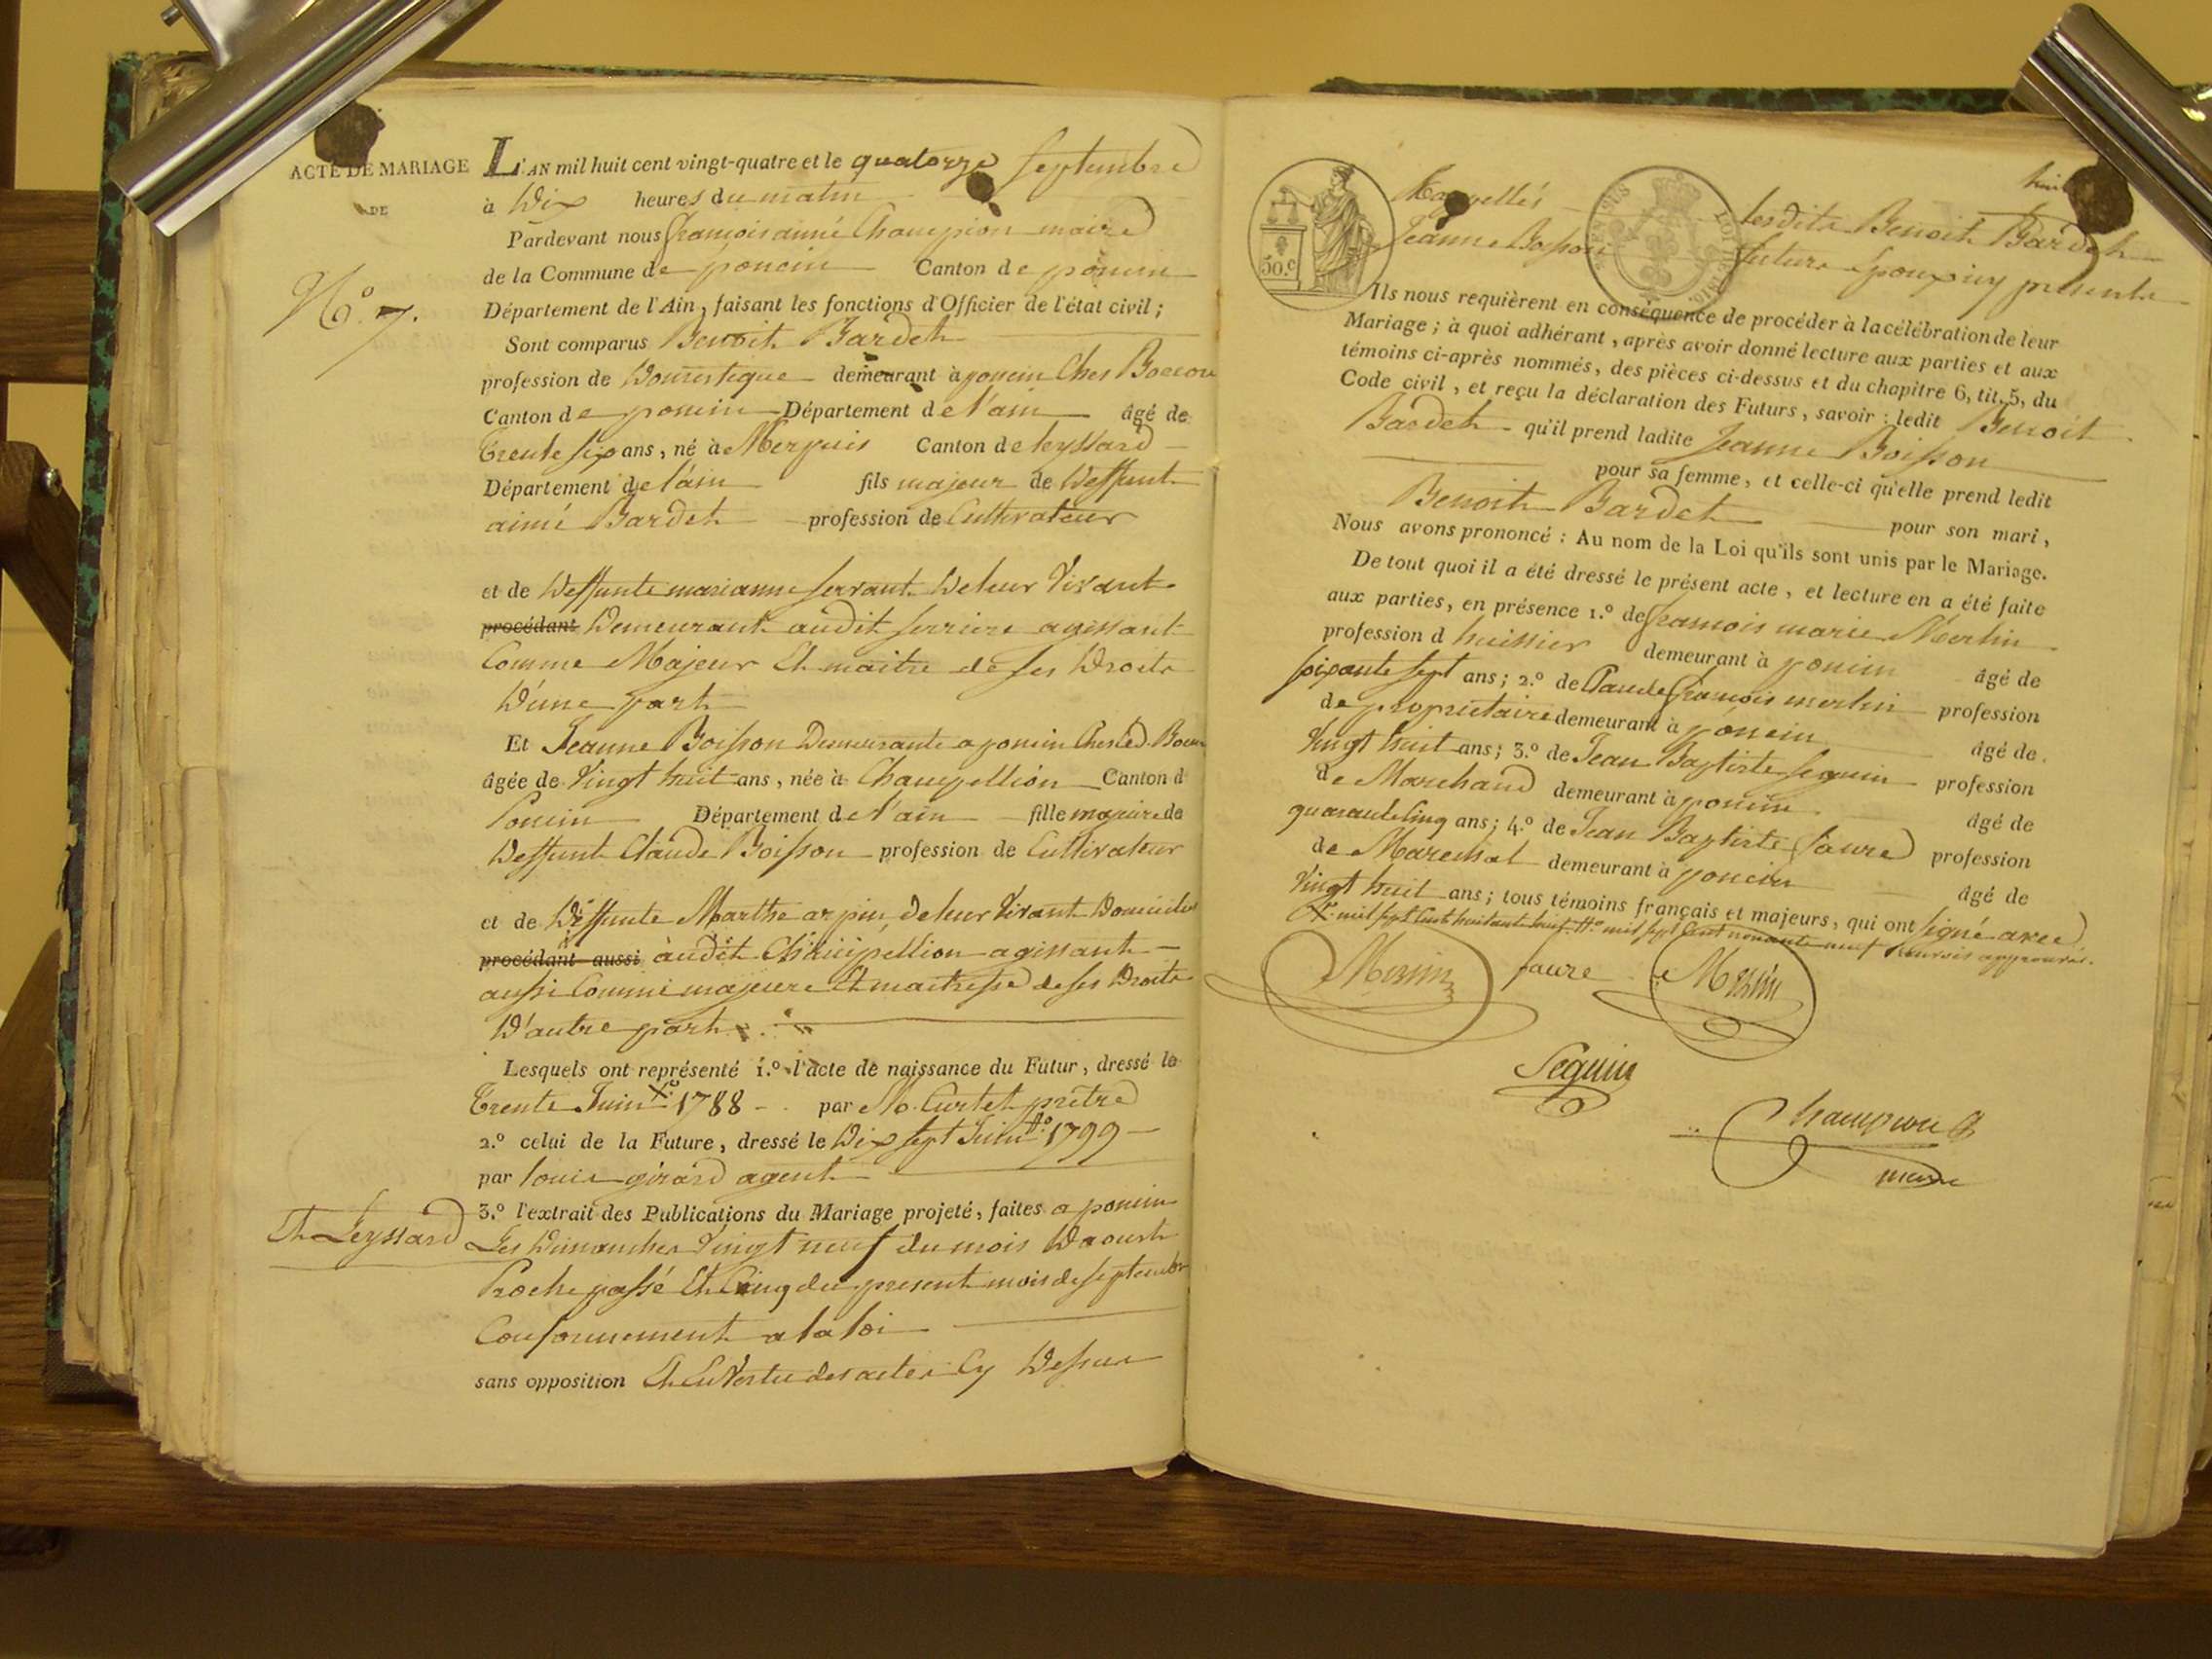 ACTE DE MARIAGE
DE
N.º 7.
L'AN mil huit cent vingt-quatre et le quatorze Septembre
à Dix heures du matin
Pardevant nous françois aimé Champion maire
de la Commune de poncin Canton de poncin
Département de l'Ain, faisant les fonctions d'Officier de l'état civil ;
Sont comparus Benoit Bardet
profession de Domestique demeurant à poncin Ches
Canton de poncin Département de l'ain âgé de
Trente six ans, né à Canton de leyssard
Département de l'ain fils majeur de Deffunt
aimé Bardet profession de Cultivateur
et de Deffunte marianne servant De leur Vivant
procédant Demeurant audit serriere agissant
Comme Majeur Et maitre de ses Droits
D'une part
Et Jeanne Boisson Demeurante a poncin Ches led.
âgée de Vingt huit ans, née à Champellion Canton d
Poncin Département de l'ain fille majeure de
Deffunt Claude Boisson profession de Cultivateur
et de Deffunte Marthe arpin, de leur Vivant Domiciliés
procédant aussi audit Champellion agissant
aussi Comme majeure Et maitresse de ses Droits
D'autre part
Lesquels ont représenté 1.º l'acte de naissance du Futur, dressé le
Trente Juin X.º 1788 par M.o Curtet prêtre
2.º celui de la Future, dressé le Dix sept Juin #.º 1799
par louis girard agent
Et Leyssard
3.º l'extrait des Publications du Mariage projeté, faites a poncin
Les Dimanches Vingt neuf du mois D'aoust
Proche passé Et Cinq du present mois de septembre
Conformement a la loi
sans opposition Et En Vertu des actes Cy Dessus
50.c
LOI DE 1816.
lesdits Benoit Bardet
Jeanne Boisson futurs Epoux icy presents
Ils nous requièrent en conséquence de procéder à la célébration de leur
Mariage ; à quoi adhérant, après avoir donné lecture aux parties et aux
témoins ci-après nommés, des pièces ci-dessus et du chapitre 6, tit. 5, du
Code civil, et reçu la déclaration des Futurs, savoir : ledit Benoit
Bardet qu'il prend ladite Jeanne Boisson
pour sa femme, et celle-ci qu'elle prend ledit
Benoit Bardet pour son mari,
Nous avons prononcé : Au nom de la Loi qu'ils sont unis par le Mariage.
De tout quoi il a été dressé le présent acte, et lecture en a été faite
aux parties, en présence 1.º de francois marie Merlin
profession d huissier demeurant à poncin âgé de
soixante sept ans ; 2.º de Claude francois merlin profession
de proprietaire demeurant à poncin âgé de
Vingt huit ans ; 3.º de Jean Baptiste seguin profession
de Marchand demeurant à poncin âgé de
quarante Cinq ans ; 4.º de Jean Baptiste faure profession
de Marechal demeurant à poncin âgé de
Vingt huit ans ; tous témoins français et majeurs, qui ont signé avec
X.º mil sept Cent huitante huit #.º mil sept Cent nonante neuf approuvés.
Merlin faure Merlin
Seguin
Champion
maire